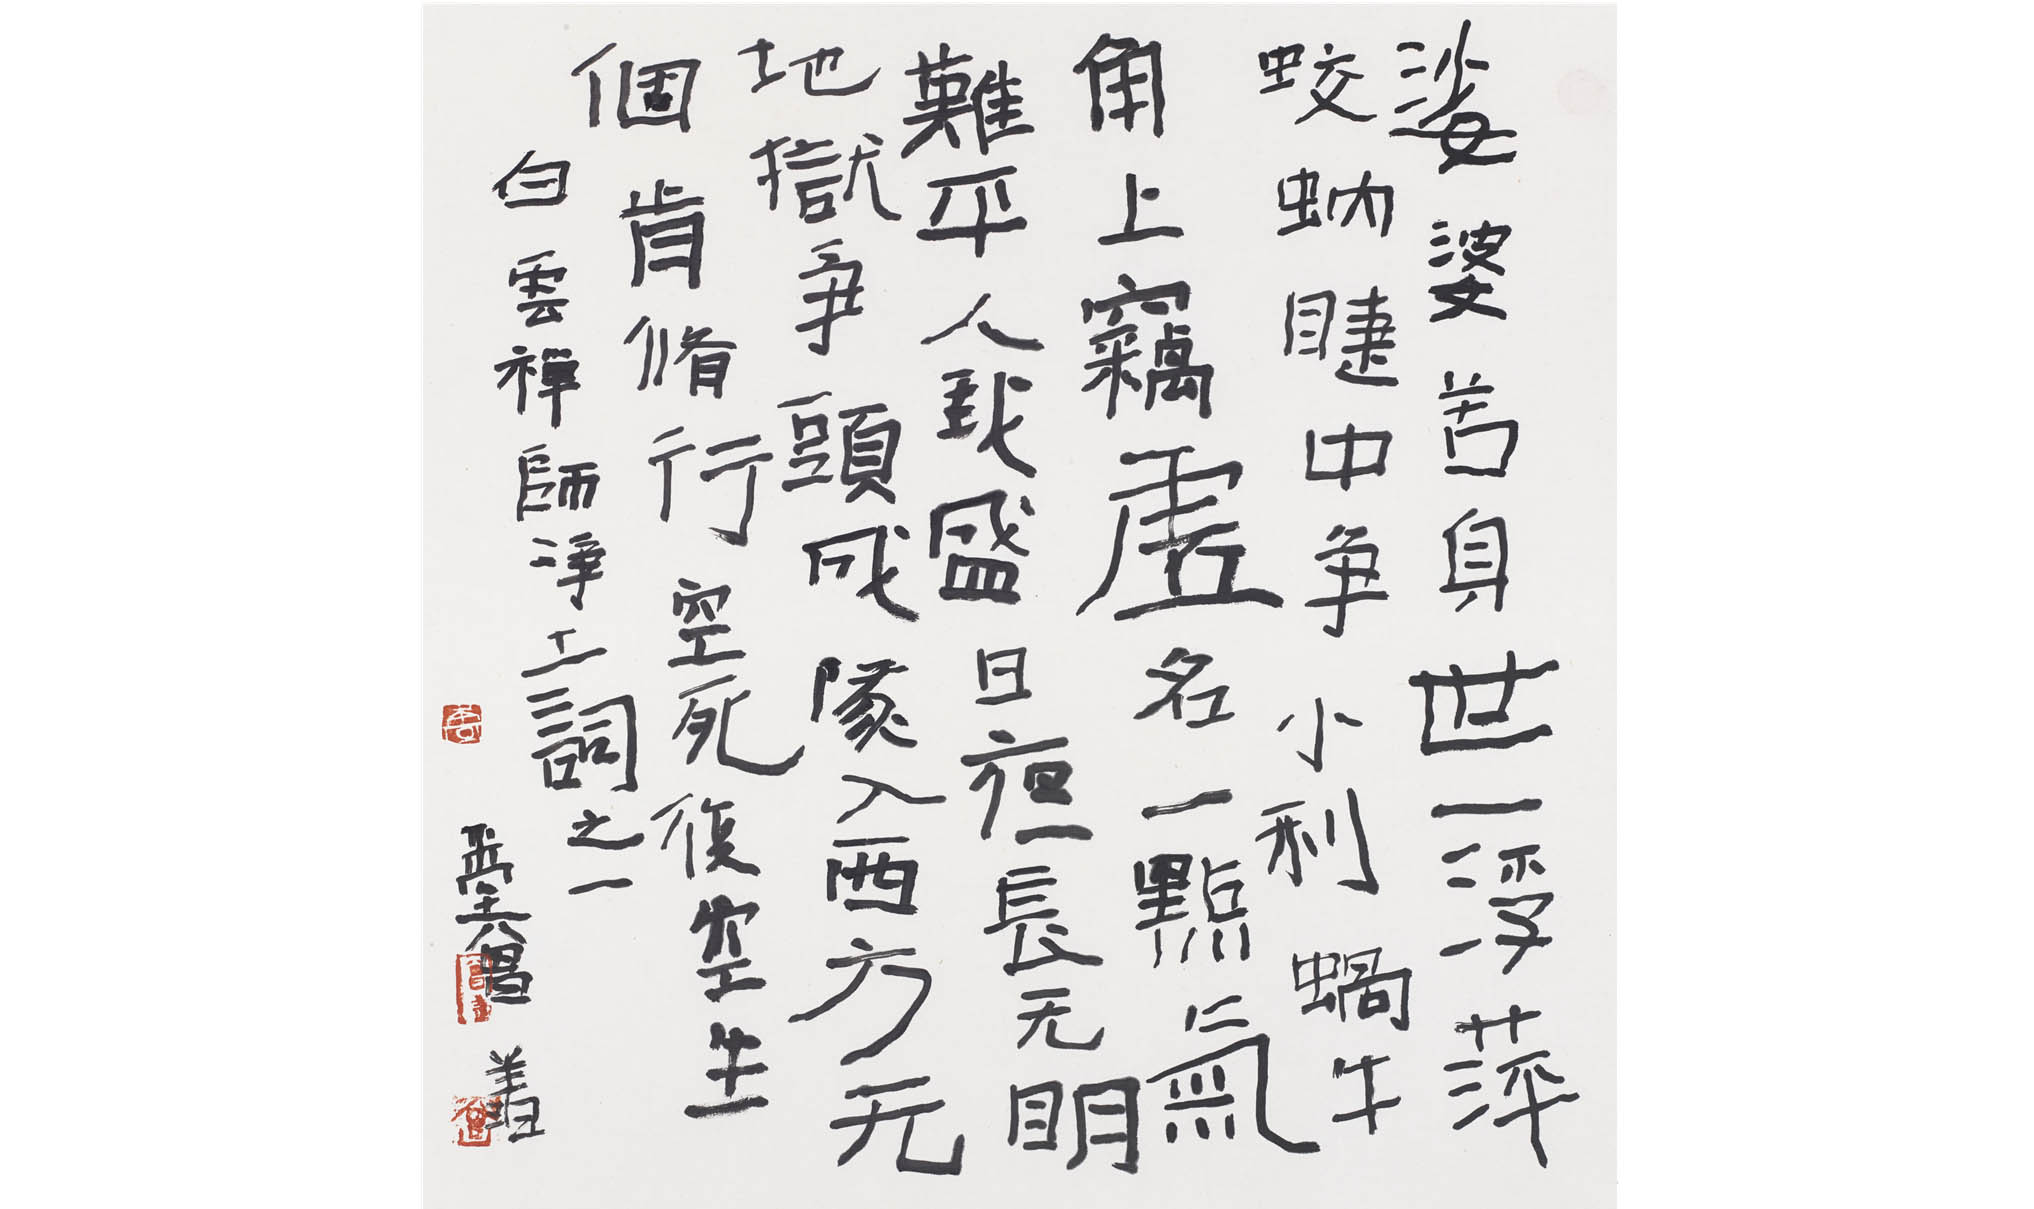 娑婆苦身世一浮萍
蛟蚋睫中争小利蝸牛
角上竊虛名一點氣
難平人我盛日夜長无明
地獄爭頭成隊入西方无
個肯脩行空死復空生
白雲禪師淨土詞之一